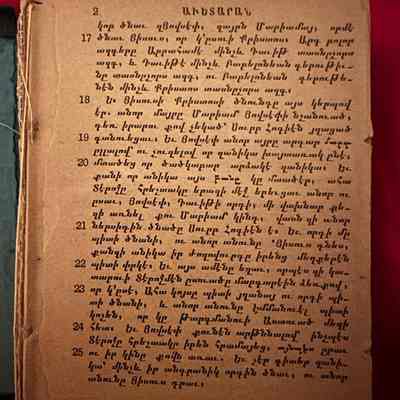 2 ԱՒԵՏԱՐԱՆ
կոբ ծնաւ զՅովսէփ, զայրն Մարիամայ, որմէ
17 ծնաւ Յիսուս, որ կ՚ըսուի Քրիստոս։ Արդ բոլոր
ազգերը Աբրահամէ մինչև Դաւիթ տասնըչորս
ազգ, և Դաւիթէ մինչև Բաբելոնեան գերութիւ-
նը տասնըչորս ազգ, ու Բաբելոնեան գերութե-
նէն մինչև Քրիստոս տասնըչորս ազգ։
18 Եւ Յիսուսի Քրիստոսի ծնունդը այս կերպով
էր. անոր մայրը Մարիամ Յովսէփի նշանուած,
դեռ իրարու քով չեկած՝ Սուրբ Հոգիէն յղացած
19 գտնուեցաւ։ Եւ Յովսէփ անոր այրը արդար մարդ
ըլլալով ու չուզելով որ զանիկա խայտառակ ընէ,
20 մտածեց որ ծածկաբար արձակէ զանիկա։ Եւ
քանի որ անիկա այս բանը կը մտածէր, ահա
Տէրոջը հրեշտակը երազի մէջ երեւցաւ անոր ու
ըսաւ, Յովսէփ, Դաւիթի որդի, մի վախնար քե-
զի առնել քու Մարիամ կինդ, վասն զի անոր
21 ներսիդին ծնածը Սուրբ Հոգիէն է։ Եւ որդի մը
պիտի ծնանի, ու անոր անունը Յիսուս դնես,
քանզի անիկա իր ժողովուրդը իրենց մեղքերէն
22 պիտի փրկէ։ Եւ այս ամէնը եղաւ, որպէս զի կա-
տարուի Տէրոջմէն ըսուածը մարգարէին ձեռքով,
23 որ կ՚ըսէ, Ահա կոյսը պիտի յղանայ ու որդի պի-
տի ծնանի, և անոր անունը Էմմանուէլ պիտի
կոչեն, որ կը թարգմանուի Աստուած մեզի
24 հետ։ Եւ Յովսէփ քունէն արթննալով ինչպէս
Տէրոջը հրեշտակը իրեն հրամայեց, այնպէս ըրաւ
25 ու իր կինը քովն առաւ. Եւ չէր գիտեր զանի-
կա՝ մինչև իր անդրանիկ որդին ծնաւ. ու անոր
անունը Յիսուս դրաւ։